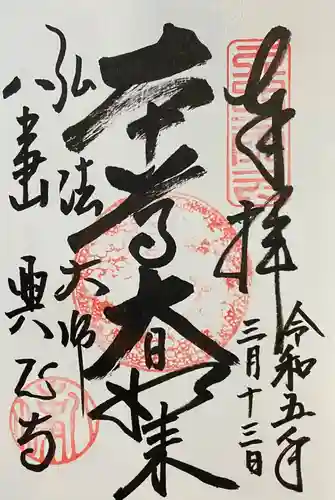 奉拝
令和五年
三月十三日
本尊大日如来
弘法大師
八妻山
興正寺